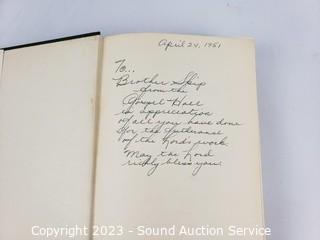 April 24, 1951
To...
Brother Skip
from the
Gospel Hall
in appreciation
of all you have done
for the furtherance
of the Lords work.
May the Lord
richly bless you.
Copyright 2023 - Sound Auction Service